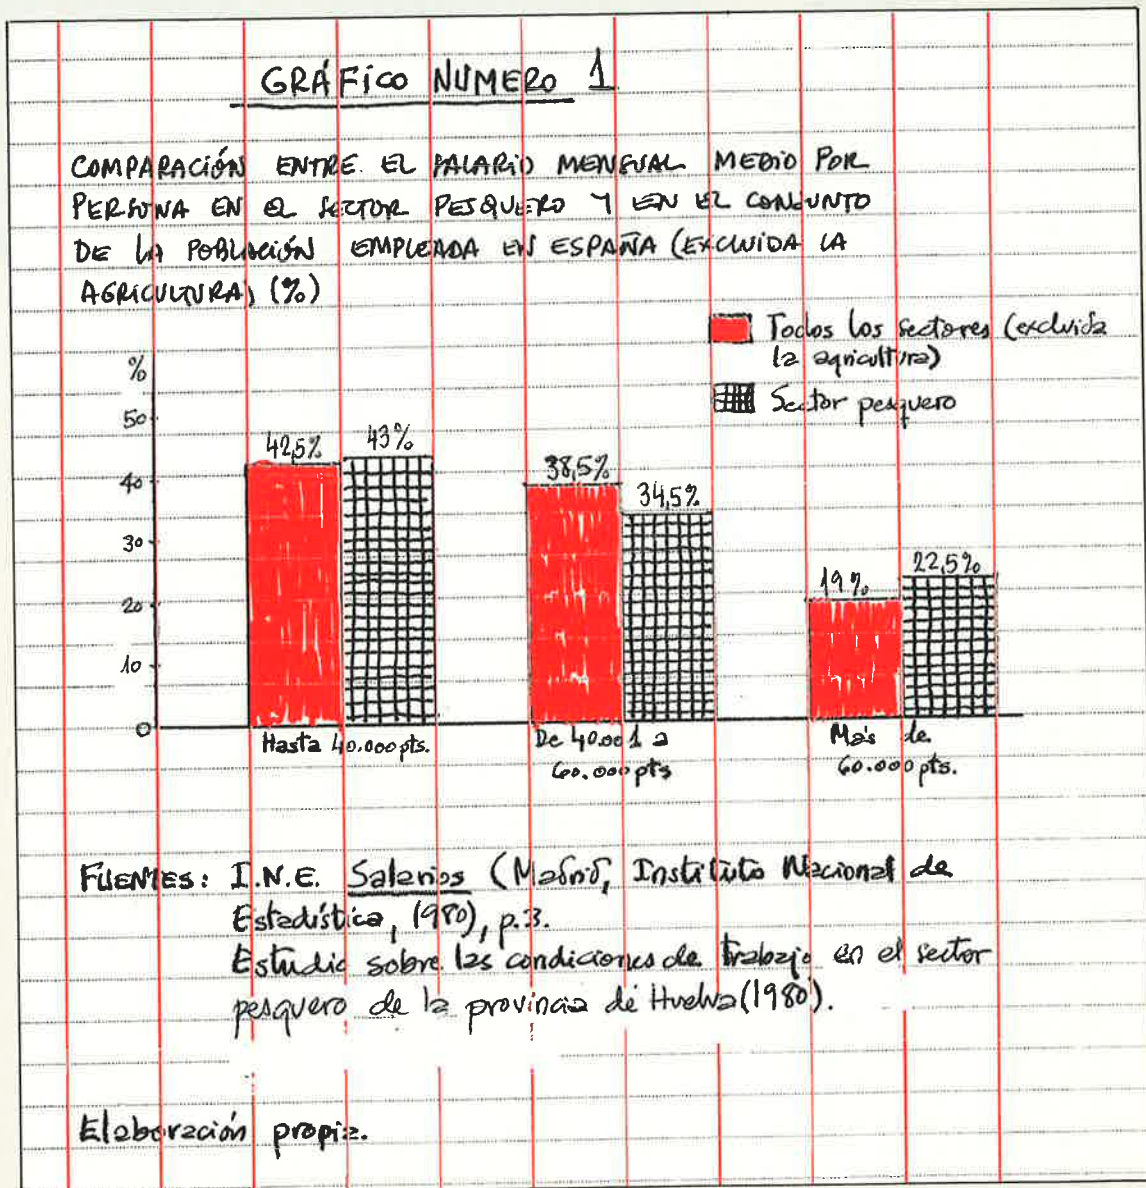 GRÁFICO NUMERO 1
COMPARACIÓN ENTRE EL SALARIO MENSUAL MEDIO POR
PERSONA EN EL SECTOR PESQUERO Y EN EL CONJUNTO
DE LA POBLACIÓN EMPLEADA EN ESPAÑA (EXCLUIDA LA
AGRICULTURA) (%)
Todos los sectores (excluida
la agricultura)
Sector pesquero
%
50
40
30
20
10
0
42,5%
43%
38,5%
34,5%
19%
22,5%
Hasta 40.000 pts.
De 40.001 a
60.000 pts
Más de
60.000 pts.
FUENTES: I.N.E. Salarios (Madrid, Instituto Nacional de
Estadística, (1980), p.3.
Estudio sobre las condiciones de trabajo en el sector
pesquero de la provincia de Huelva (1980).
Elaboración propia.